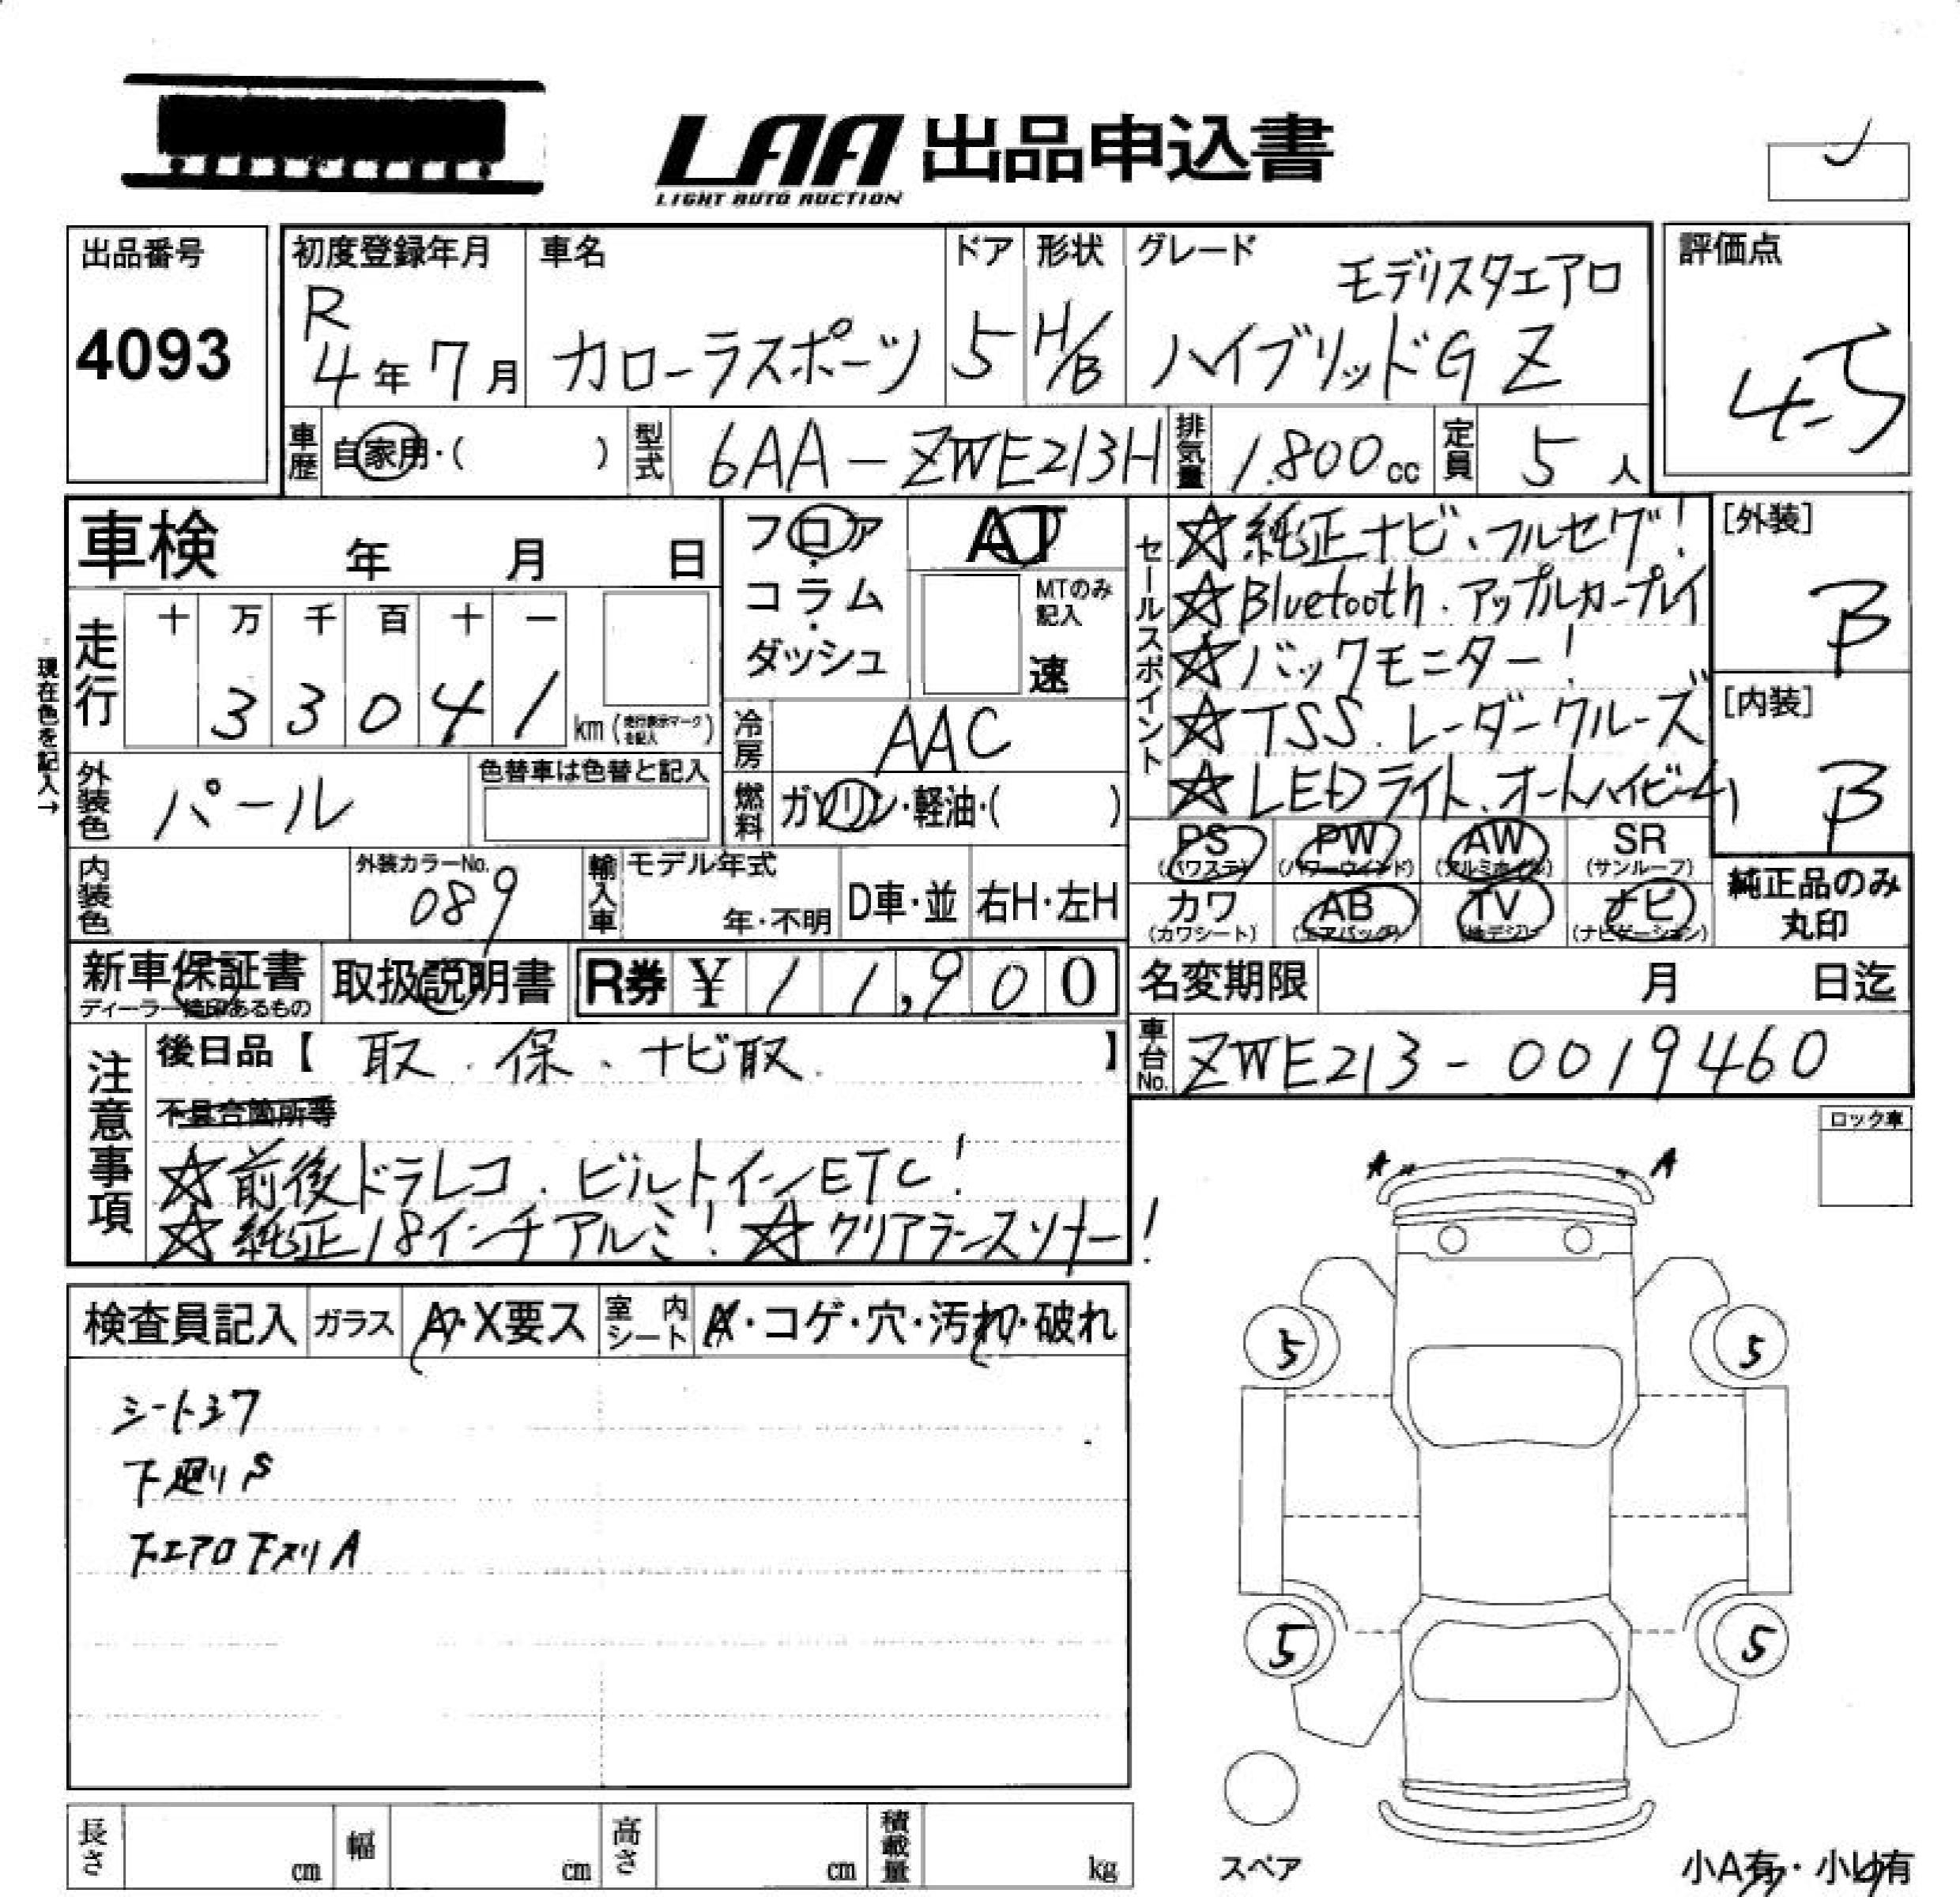 LAA 出品申込書
LIGHT AUTO AUCTION
出品番号
4093
初度登録年月
R
4年7月
車名
カローラスポーツ
ドア
5
形状
H/B
グレード
モデリスタエアロ
ハイブリッドG Z
評価点
4.5
車歴
自家用・( )
型式
6AA-ZWE213H
排気量
1.800cc
定員
5人
車検 年 月 日
フロア・コラム・ダッシュ
AT
MTのみ記入
速
セールスポイント
☆純正ナビ、フルセグ!
☆Bluetooth.アップルカープレイ
☆バックモニター!
☆TSS.レーダークルーズ
☆LEDライト、オートハイビーム
[外装]
B
[内装]
B
現在色を記入→
走行
十 万 千 百 十 一
3 3 0 4 1
km(走行表示マークを記入)
冷房
AAC
外装色
パール
色替車は色替と記入
燃料
ガソリン・軽油・( )
PS (パワステ)
PW (パワーウインド)
AW (アルミホイル)
SR (サンルーフ)
カワ (カワシート)
AB (エアバック)
TV (地デジ)
ナビ (ナビゲーション)
純正品のみ丸印
内装色
外装カラーNo.
089
輸入車
モデル年式
年・不明
D車・並
右H・左H
新車保証書
ディーラー捺印あるもの
取扱説明書
R券 ¥ 11,900
名変期限 月 日迄
車台No.
ZWE213-0019460
注意事項
後日品【 取.保.ナビ取. 】
不具合箇所等
☆前後ドラレコ.ビルトインETC!
☆純正18インチアルミ!☆クリアランスソナー!
ロック車
A A
検査員記入
ガラス
A・X要ス
室内シート
A・コゲ・穴・汚れ・破れ
シートシワ
下廻りS
下エアロ下スリA
5 5
5 5
スペア
長さ cm
幅 cm
高さ cm
積載量 kg
小A有・小U有